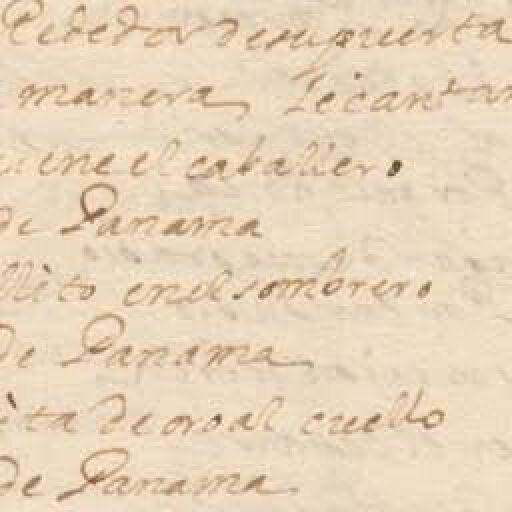 Rededor desupuerta
manera, lecantan
iene el caballero
de Panama
llito enelsombrero
de Panama
ita deoroal cuello
de Panama.